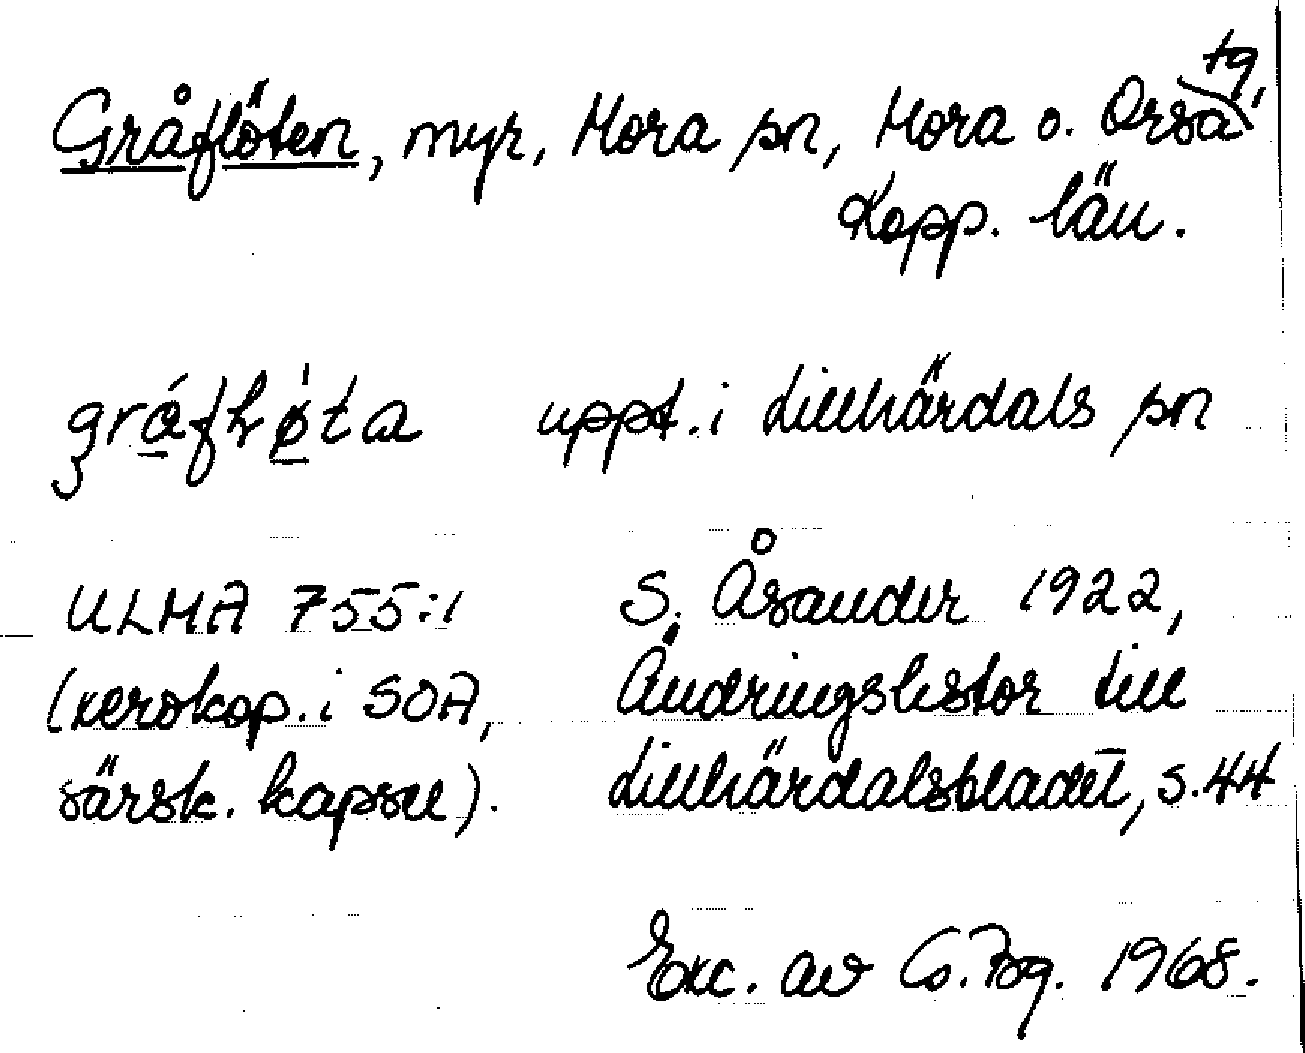 Gråflöten, myr, Mora sn, Mora o. Orsa tg,
Kopp. län.
uppt. i Lillhärdals sn
ULMA 755:1 S. Åsander 1922,
(xerokop. i SOA, Ändringslistor till
särsk. kapsel). Lillhärdalsbladet, s. 44
Exc. av 1968.